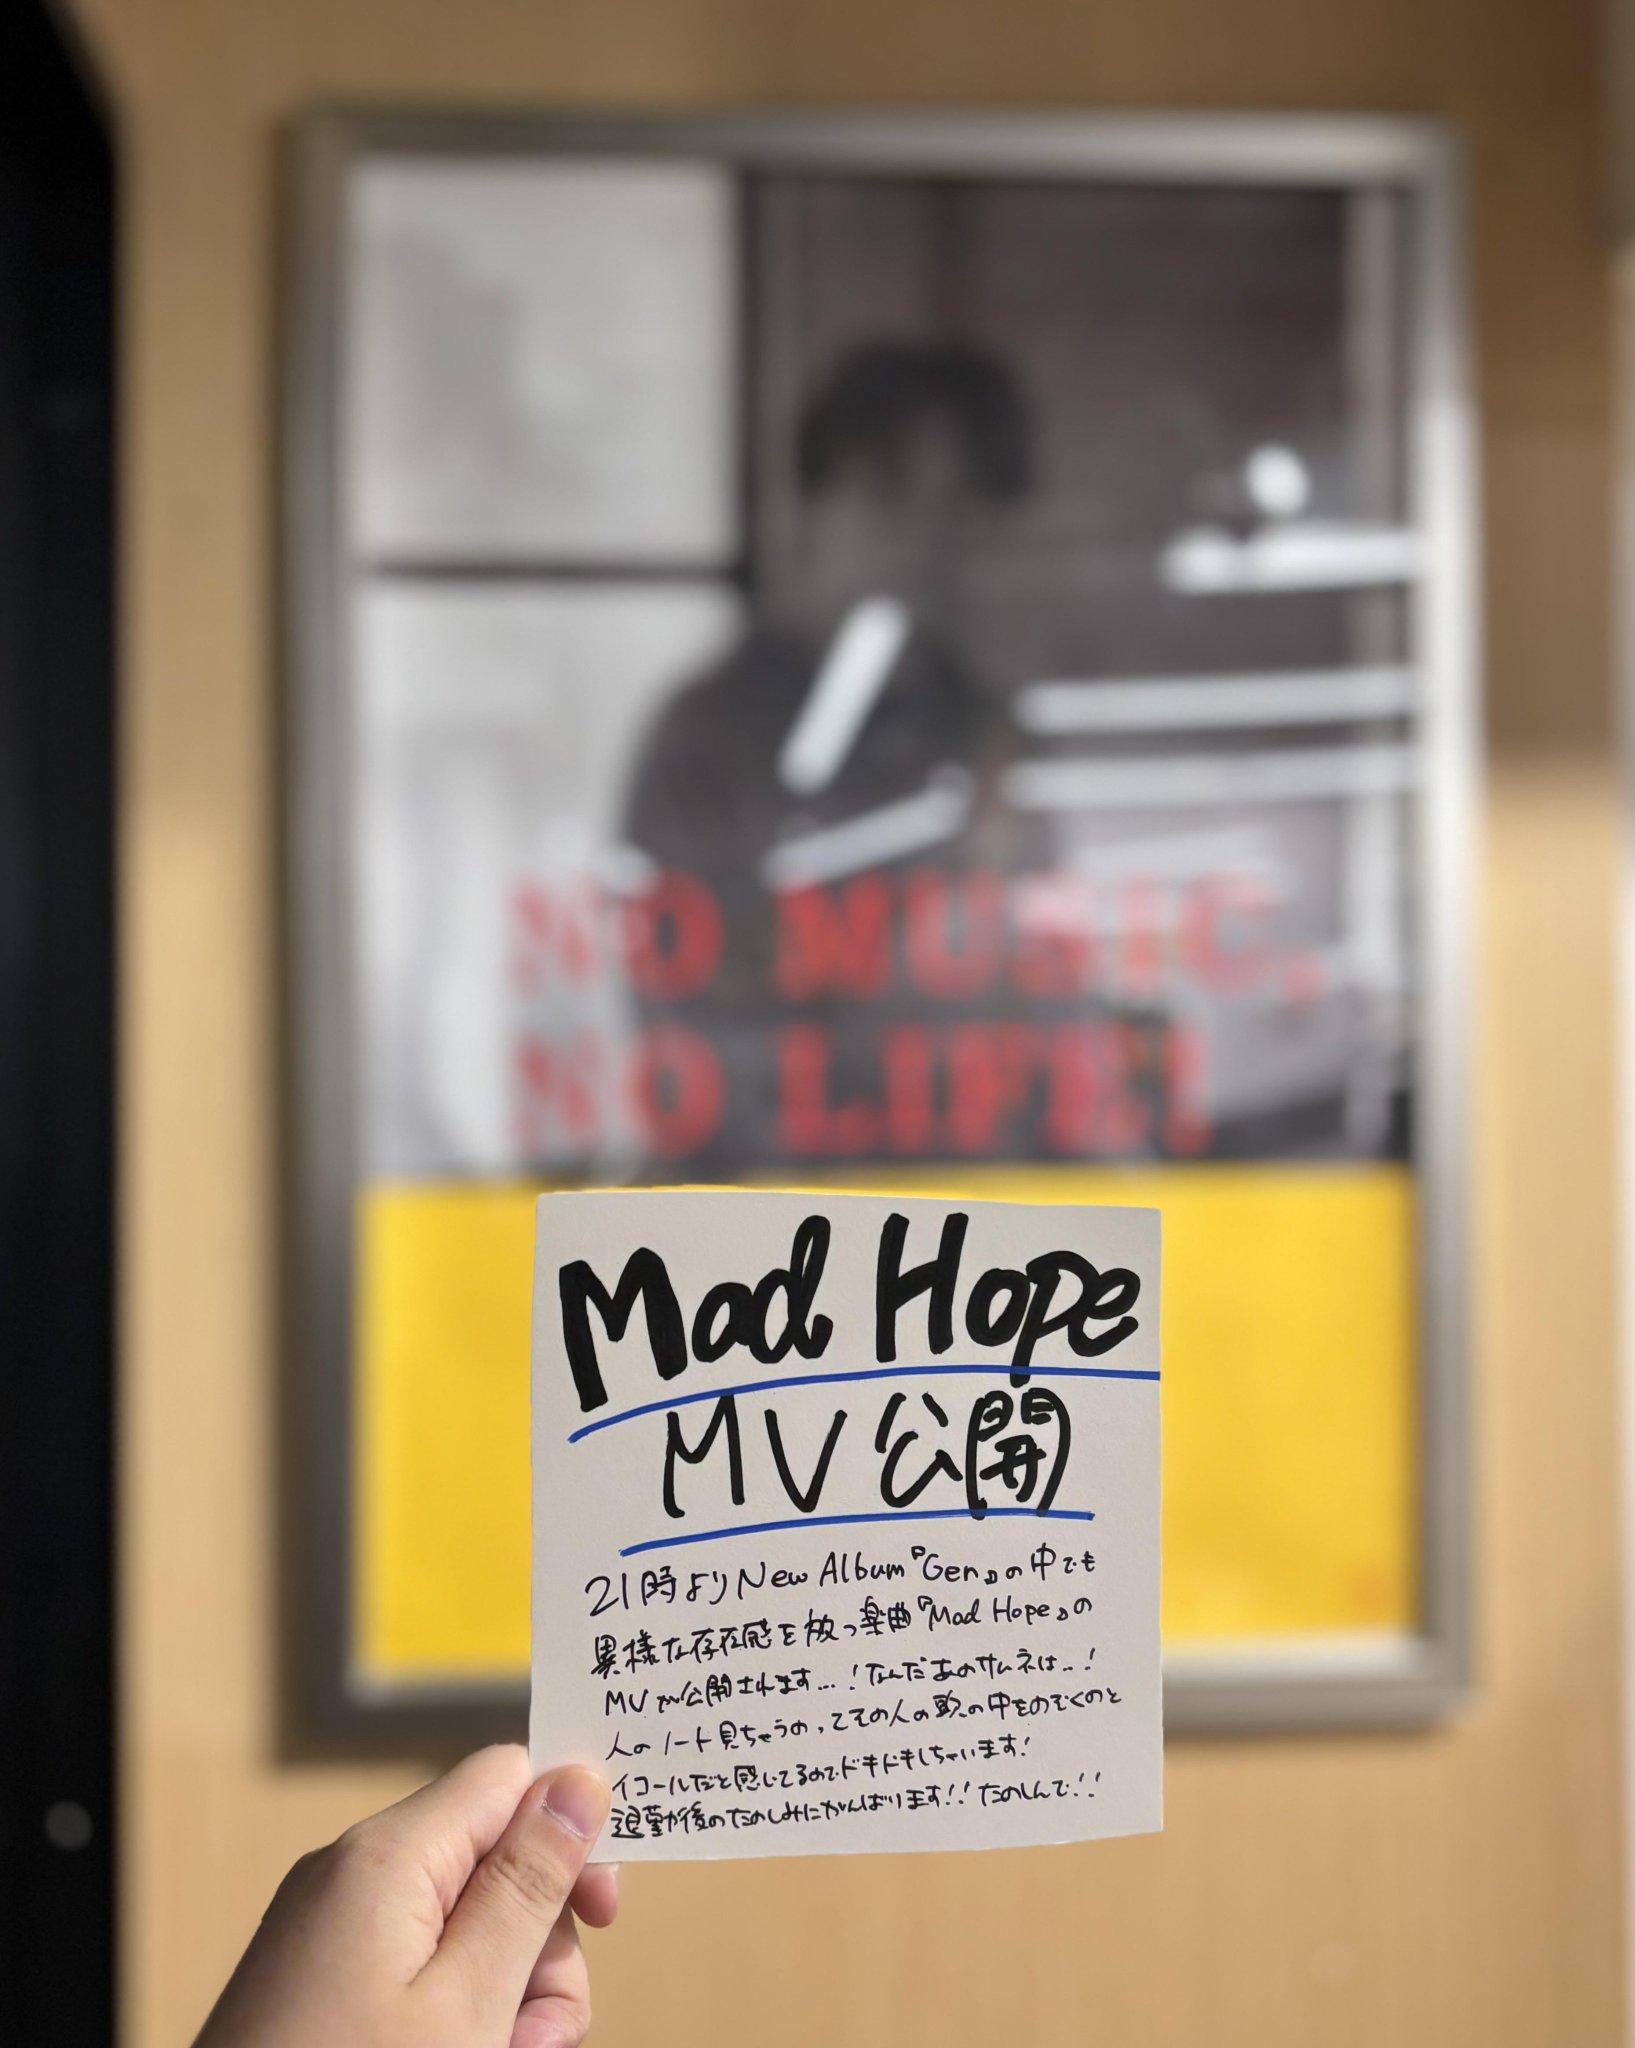 NO MUSIC,
NO LIFE!
Mad Hope
MV公開
21時よりNew Album『Gen』の中でも
異様な存在感を放つ楽曲『Mad Hope』の
MVが公開されます...!なんだあのサムネは...!
人のノート見ちゃうの、てその人の頭の中をのぞくのと
イコールだと感じてるのでドキドキしちゃいます!
退勤後のたのしみにがんばります!!たのしんで!!